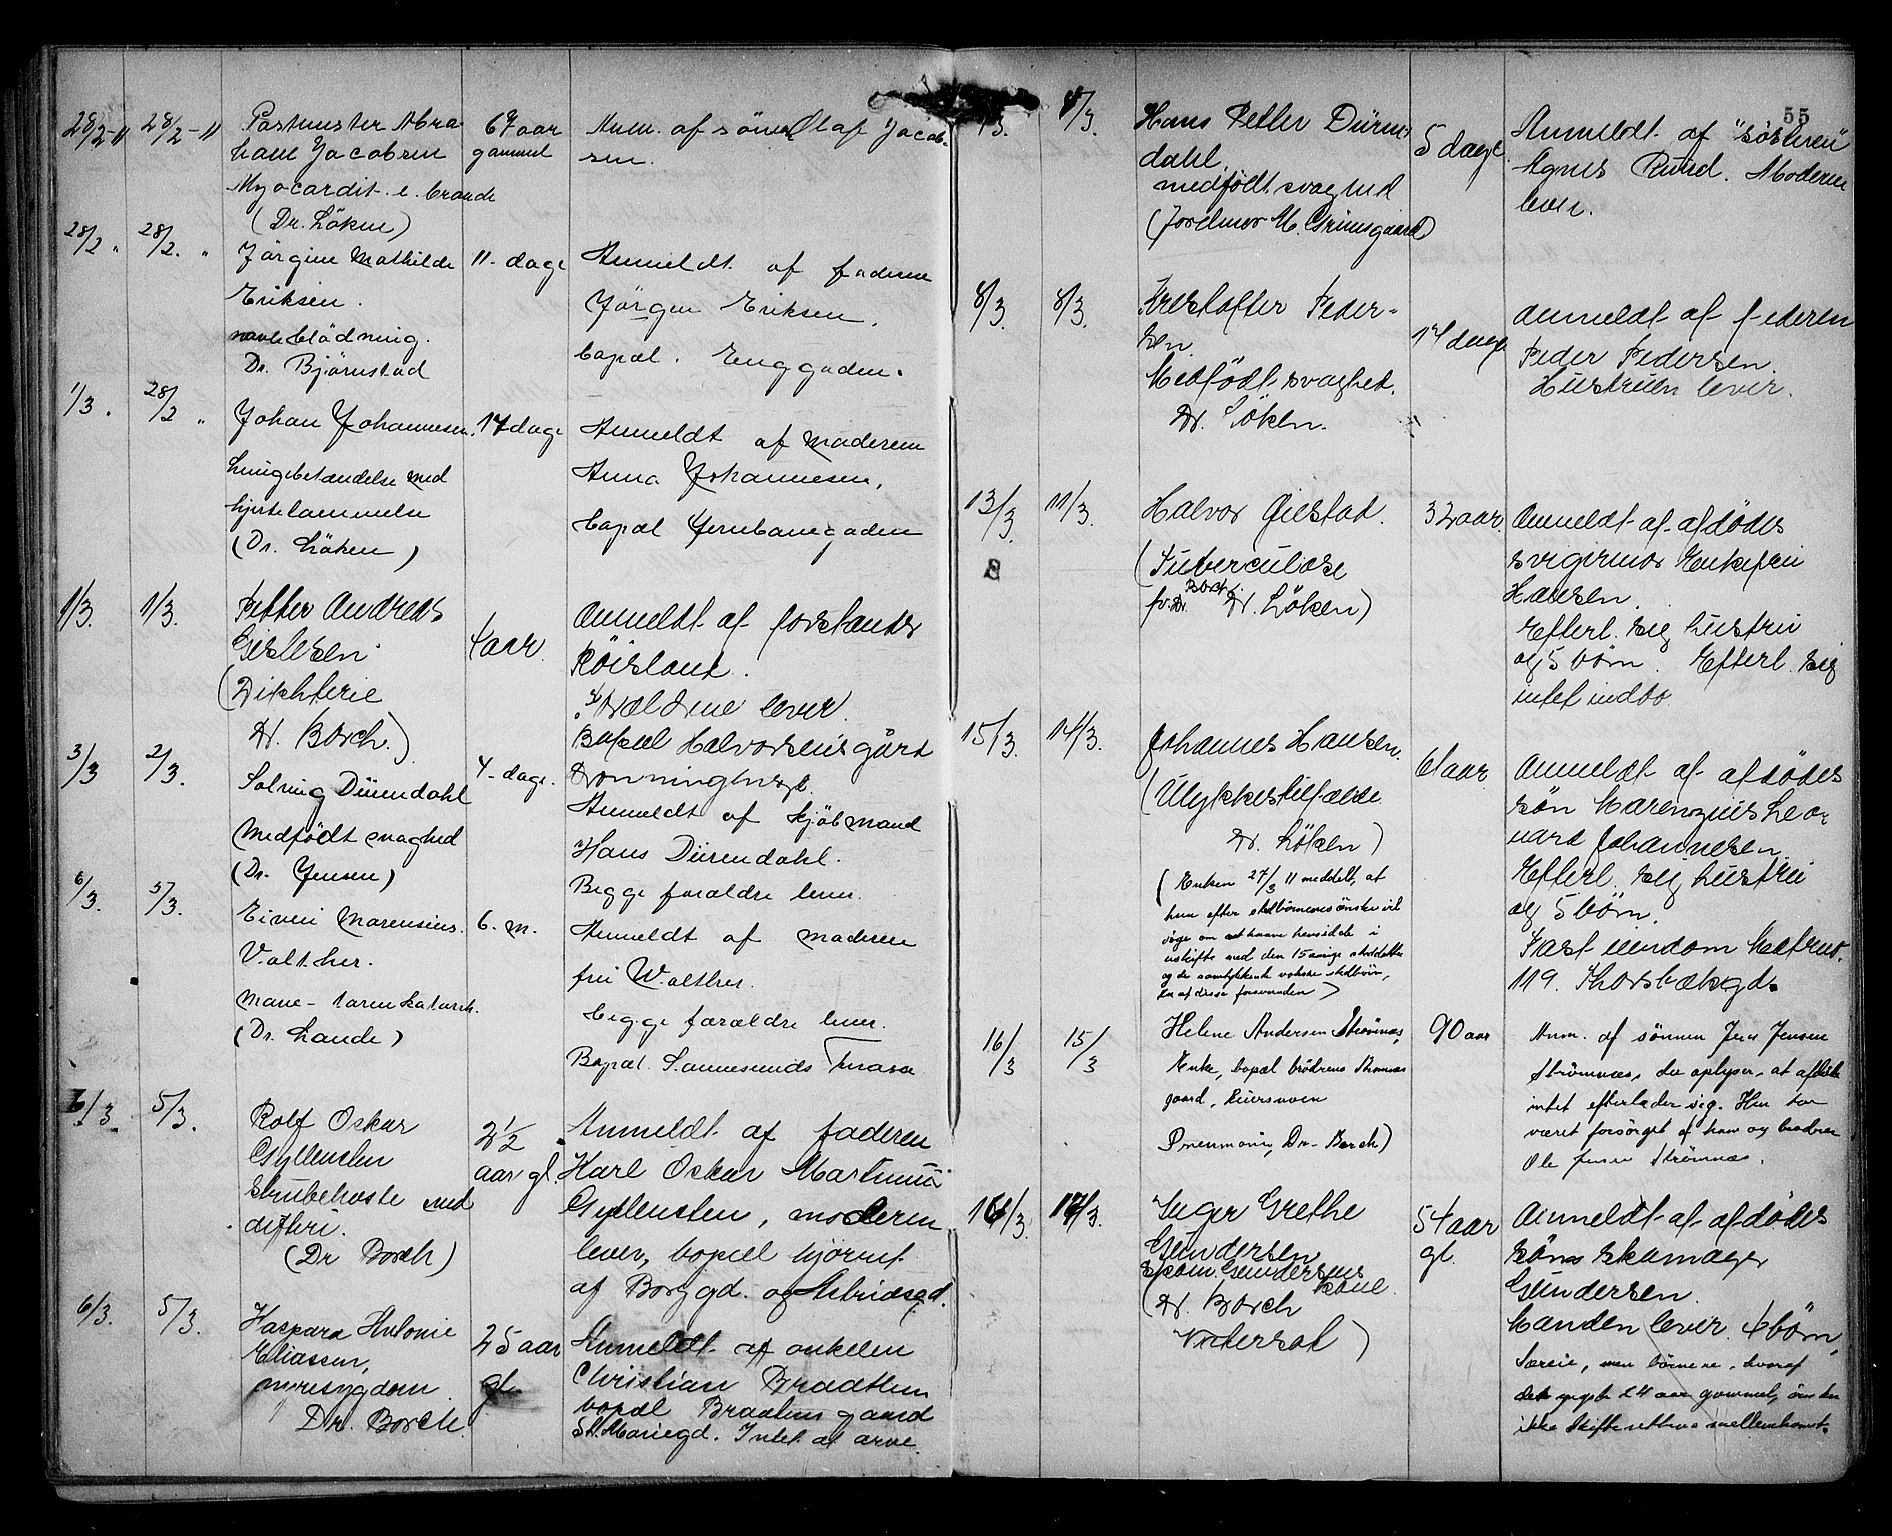 28/2-11 28/2-11 Postmester Abra
ham Jacobsen
Myocardit. c.
(Dr. Löken)
67 aar
gammel
Anm. af sönen Olaf Jacob-
sen.
28/2 " 28/2. " Jörgine Mathilde
Eriksen.
navleblödning.
Dr. Björnstad
11- dage
Anmeldt af faderen
Jörgen Eriksen,
bopæl. Enggaden.
1/3. 28/2 " Johan Johannesen.
Lungebetændelse med
hjertelammelse
(Dr. Löken)
17 dage
Anmeldt af moderen
Anna Johannesen,
bopæl Jernbanegaden
1/3. 1/3. Petter Andreas
Gislesen
(Difhterie
Dr. Borch.)
4 aar.
Anmeldt af forstander
Röisland.
Forældrene lever.
Bopæl Halvorsens gård
Dronningensgt.
3/3 2/3. Solveig Dürendahl
Medfödt svaghed
(Dr. Jensen)
4- dage.
Anmeldt af kjöbmand
Hans Dürendahl.
Begge forældre lever.
6/3. 5/3. Eivin Marensius.
Valther.
Mave- tarmkatarrh.
(Dr. Lande)
6. m.
Anmeldt af moderen
fru Walther.
begge forældre lever.
Bopæl. Sannesunds Terasse
6/3. 5/3. Rolf Oskar
Gyllensten
Strubehoste med
difteri.
(Dr Borch)
2 1/2
aar gl.
Anmeldt af faderen
Karl Oskar Martinus
Gyllensten, moderen
lever, bopæl hjörnet
af Borggd. og Astridsgd.
6/3. 5/3. Kaspara Antonie
Eliassen,
nyresygdom.
Dr. Borch.
25 aar
gl.
Anmeldt af onkelen
Christian Braathen
bopæl Braatens gaard
St. Mariegd. Intet at arve.
55
8/3. Hans Petter Düren
dahl
medfödt svaghed
(Jordmor M. Grimsgaard)
5 dage.
Anmeldt af "søsteren"
Agnes Ruud. Moderen
lever.
8/3 8/3. Kristoffer Peder-
sen.
Medfödt svaghed.
Dr. Löken.
14 dage
Anmeldt af faderen
Peder Pedersen.
Hustruen lever.
13/3. 11/3. Halvor Gjestad.
(Tuberculose
for Dr. Borch Dr. Löken)
32 aar.
Anmeldt af afdödes
svigermor Enkefru
Hansen.
Efterl. sig hustru
og 5 børn. Efterl. sig
intet indbo
15/3. 14/3. Johannes Hansen.
(Ulykkestilfælde
Dr. Löken)
(Enken 27/3 11 meddelt, at
hun efter stedbörnenes önske vil
söge om at haave hensidde i
uskifte med den 15 aarige steddatter
og de samtykkende voksne stedbörn,
En af disse forsvunden)
61 aar
Anmeldt af afdödes
sön Marenzius Leo-
nard Johannesen.
Efterl. sig hustru
og 5 børn.
Fast eiendom Matrnr.
119. Thorsbækgd.
16/3 15/3 Helene Andersen Strömnæs,
Enke, bopæl brödrene Strömnæs
gaard,
Pneumoni, Dr. Borch)
90 aar
Anm. af sönnen Jens Jensen
Strömnæs, der oplyser, at afdöde
intet efterlader sig. Hun har
været forsörget af ham og broderen
Ole Jensen Strömnæs.
16/3. Inger Grethe
Gundersen
Skom. Gundersens
kone.
(Dr. Borch
Vatersot)
54 aar
gl.
Anmeldt af afdödes
söns skomager
Gundersen.
Manden lever. 4 børn,
Særeie, men börnene, hvoraf
det yngste 24 aar gammel, önsker
ikke Skifterettens mellemkomst.